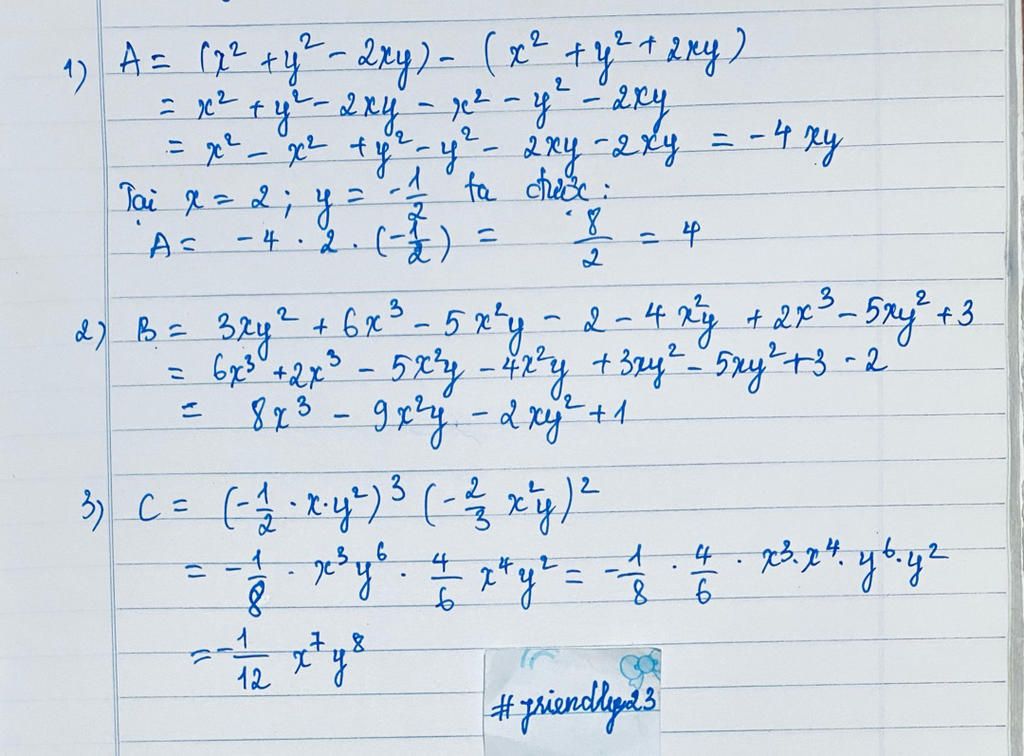 1) A = (x² + y² - 2xy) - (x² + y² + 2xy)
= x² + y² - 2xy - x² - y² - 2xy
= x² - x² + y² - y² - 2xy - 2xy = -4xy
Tại x = 2 ; y = -1/2 ta được :
A = -4 . 2 . (-1/2) = 8/2 = 4
2) B = 3xy² + 6x³ - 5x²y - 2 - 4x²y + 2x³ - 5xy² + 3
= 6x³ + 2x³ - 5x²y - 4x²y + 3xy² - 5xy² + 3 - 2
= 8x³ - 9x²y - 2xy² + 1
3) C = (-1/2 . x . y²)³ (-2/3 x²y)²
= -1/8 . x³y⁶ . 4/6 x⁴y² = -1/8 . 4/6 . x³ . x⁴ . y⁶ . y²
= -1/12 x⁷y⁸
#friendly23